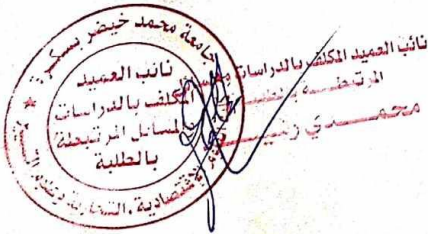 جامعة محمد خيضر بسكرة
نائب العميد
المكلف بالدراسات
والمسائل المرتبطة
بالطلبة
الإقتصادية، التجارية وعلوم التسيير
نائب العميد المكلف بالدراسات
المرتبطة
محمدي